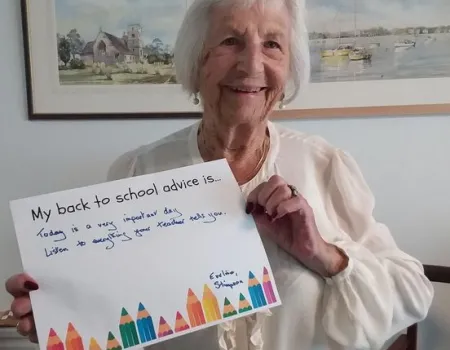 My back to school advice is...
Today is a very important day
Listen to everything your teacher tells you.
Eveline,